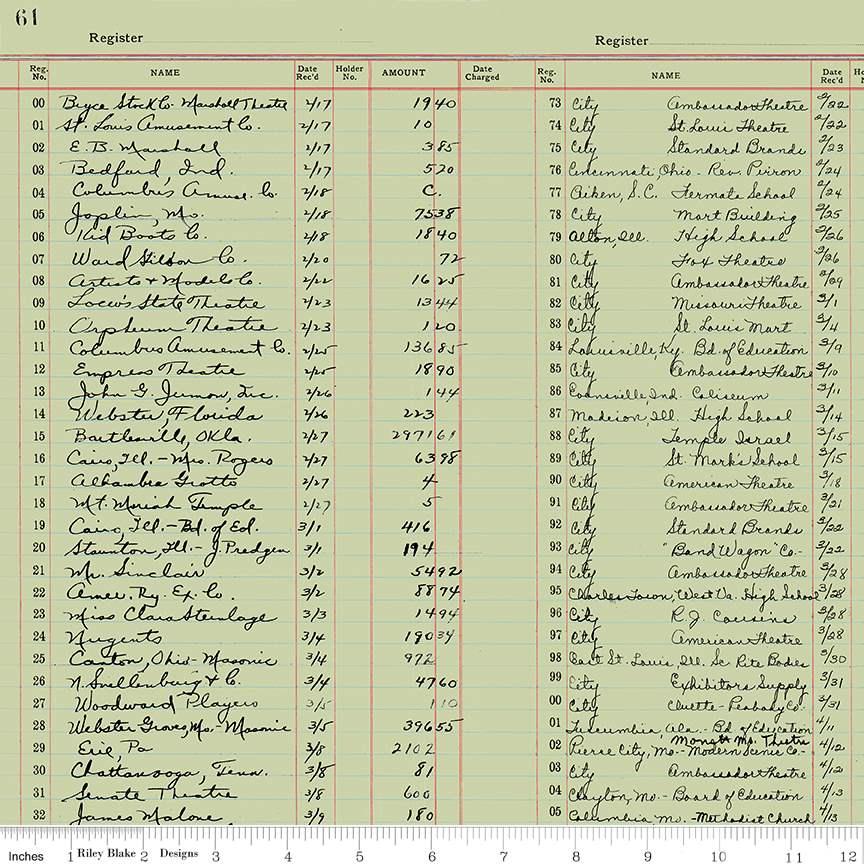 61
Register
Reg. No. NAME Date Rec'd Holder No. AMOUNT Date Charged
00 Bryce Stock Co. Marshall Theatre 2/17 19 40
01 St. Louis Amusement Co. 2/17 10
02 E. B. Marshall 2/17 3 85
03 Bedford, Ind. 2/17 5 20
04 Columbus Amuse. Co. 2/18 C.
05 Joplin, Mo. 2/18 75 38
06 Kid Boots Co. 2/18 18 40
07 Ward Co. 2/20 72
08 Artists + Models Co. 2/22 16 25
09 Loew's State Theatre 2/23 13 44
10 Orpheum Theatre 2/23 1 20
11 Columbus Amusement Co. 2/25 136 85
12 Empress Theatre 2/25 18 90
13 John G. Jermon, Inc. 2/26 1 44
14 Webster, Florida 2/26 223
15 Bartlesville, Okla. 2/27 2971 61
16 Cairo, Ill. - Mrs. Rogers 2/27 63 98
17 Alhambra Grotto 2/27 4
18 Mt. Moriah Temple 2/27 5
19 Cairo, Ill. - Bd. of Ed. 3/1 416
20 Staunton, Ill. - J. Predgen 3/1 194
21 Mr. Sinclair 3/2 54 92
22 Amer. Ry. Ex. Co. 3/2 88 74
23 Miss Clara Steinlage 3/3 14 94
24 Nugents 3/4 190 34
25 Canton, Ohio - Masonic 3/4 972
26 N. Snellenburg & Co. 3/4 47 60
27 Woodward Players 3/5 1 10
28 Webster Groves, Mo. - Masonic 3/5 396 55
29 Erie, Pa 3/8 2102
30 Chattanooga, Tenn. 3/8 81
31 Senate Theatre 3/8 600
32 James Malone 3/9 180
Register
Reg. No. NAME Date Rec'd Ho
73 City Ambassador Theatre 2/22
74 City St. Louis Theatre 2/22
75 City Standard Brands 2/23
76 Cincinnati, Ohio - Rev. 2/24
77 Aiken, S.C. Fermata School 2/24
78 City Mart Building 2/25
79 Alton, Ill. High School 2/26
80 City Fox Theatre 2/26
81 City Ambassador Theatre 2/29
82 City Missouri Theatre 3/1
83 City St. Louis Mart 3/4
84 Louisville, Ky. Bd. of Education 3/9
85 City Ambassador Theatre 3/10
86 Evansville, Ind. Coliseum 3/11
87 Madison, Ill. High School 3/14
88 City Temple Israel 3/15
89 City St. Mark's School 3/15
90 City American Theatre 3/18
91 City Ambassador Theatre 3/21
92 City Standard Brands 3/22
93 City "Band Wagon" Co. - 3/22
94 City Ambassador Theatre 3/28
95 Charles Town, West Va. High School 3/28
96 City R. J. Cousins 3/28
97 City American Theatre 3/28
98 East St. Louis, Ill. Sc. Rite Bodies 3/30
99 City Exhibitors Supply 3/31
00 City Cluett-Peabody Co. 3/31
01 Tuscumbia, Ala. - Bd. of Education 4/11
Monett Mo. Theatre
02 Pierce City, Mo. - Modern Scenic Co. - 4/12
03 City Ambassador Theatre 4/12
04 Clayton, Mo. - Board of Education 4/13
05 Columbia Mo. - Methodist Church 4/13
Inches 1 Riley Blake 2 Designs 3 4 5 6 7 8 9 10 11 12